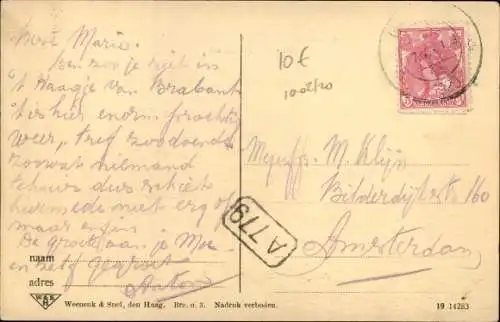 Beste Marie.
Ben zoo je ziet in
't Haagje van Brabant
't is hier enorm prachtig
weer, tref zoodoende
zoowat niemand
tehuis dus
hiermede niet erg op
maar enfin
De groeten aan je Moe
en zelf gegroet
Anton
naam
adres
W&S
H
Weenenk & Snel, den Haag. Bre. o. 3. Nadruk verboden.
10 €
1002/20
Mejuffr. M. Klijn
Bilderdijkstr 160
Amsterdam
A 779
19 14283